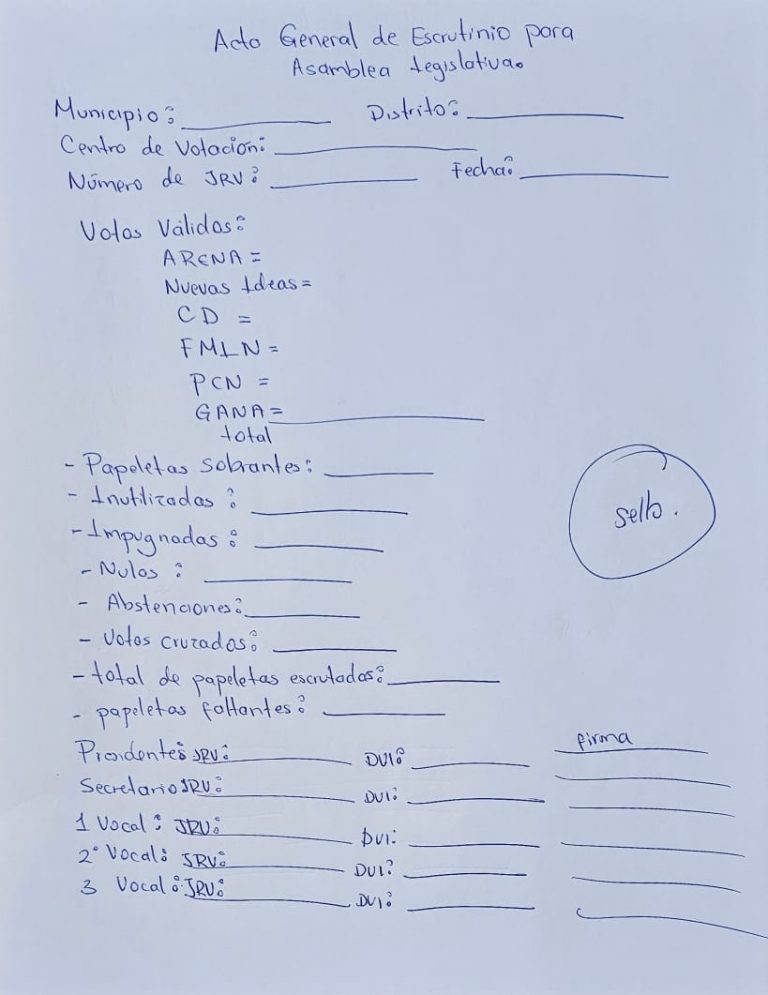 Acta General de Escrutinio para
Asamblea Legislativa.
Municipio: ____________ Distrito: ____________
Centro de Votación: ____________
Número de JRV: ____________ Fecha: ____________
Votos Válidos:
ARENA =
Nuevas Ideas =
CD =
FMLN =
PCN =
GANA = ____________
total
- Papeletas sobrantes: ____________
- Inutilizadas: ____________
- Impugnadas: ____________
- Nulos: ____________
sello.
- Abstenciones: ____________
- Votos cruzados: ____________
- total de papeletas escrutadas: ____________
- papeletas faltantes: ____________
firma
Presidente: JRV: ____________ DUI: ____________
Secretario JRV: ____________ DUI: ____________
1 Vocal: JRV: ____________ DUI: ____________
2º Vocal: JRV: ____________ DUI: ____________
3 Vocal: JRV: ____________ DUI: ____________